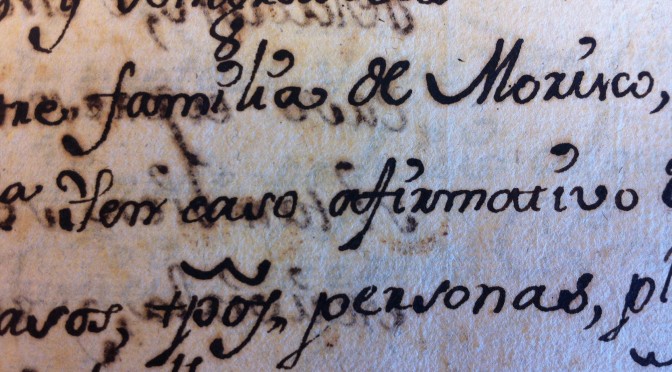 tre familia, de Morisco,
a y en caso afirmativo
asos, tpos, personas, p